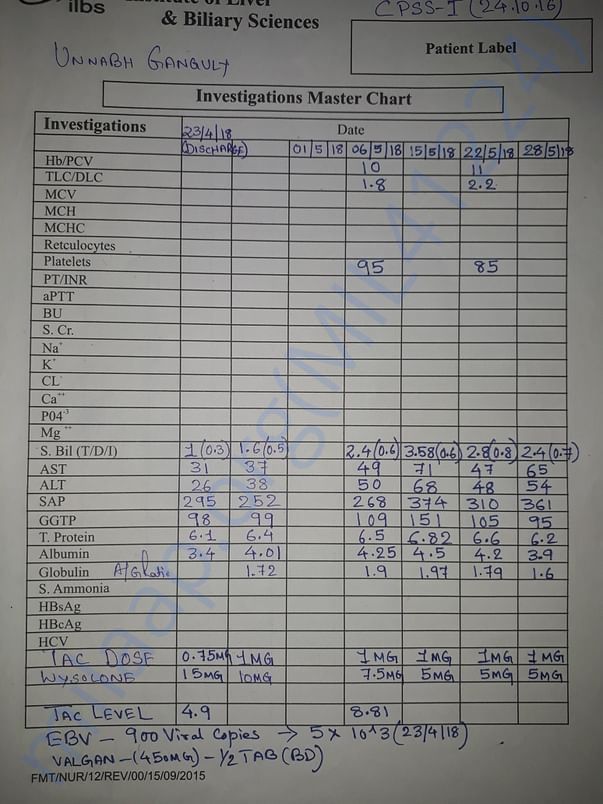 ilbs
& Biliary Sciences
CPSS-I (24.10.16)
Patient Label
UNNABH GANGULY
Investigations Master Chart
Investigations 23/4/18 Date
(DISCHARGE) 01/5/18 06/5/18 15/5/18 22/5/18 28/5/18
Hb/PCV 10 11
TLC/DLC 1.8 2.2
MCV
MCH
MCHC
Retculocytes
Platelets 95 85
PT/INR
aPTT
BU
S. Cr.
Na+
K+
CL-
Ca++
P04-3
Mg++
S. Bil (T/D/I) 1(0.3) 1.6(0.5) 2.4(0.6) 3.58(0.6) 2.8(0.8) 2.4(0.7)
AST 31 37 49 71 47 65
ALT 26 38 50 68 48 54
SAP 295 252 268 374 310 361
GGTP 98 99 109 151 105 95
T. Protein 6.1 6.4 6.5 6.82 6.6 6.2
Albumin 3.4 4.01 4.25 4.5 4.2 3.9
Globulin A/G Ratio 1.72 1.9 1.97 1.79 1.6
S. Ammonia
HBsAg
HBcAg
HCV
TAC DOSE 0.75MG 1MG 1MG 1MG 1MG 1MG
WYSOLONE 15MG 10MG 7.5MG 5MG 5MG 5MG
TAC LEVEL 4.9 8.81
EBV - 900 Viral Copies → 5 x 10^3 (23/4/18)
VALGAN-(450MG)-1/2 TAB (BD)
FMT/NUR/12/REV/00/15/09/2015